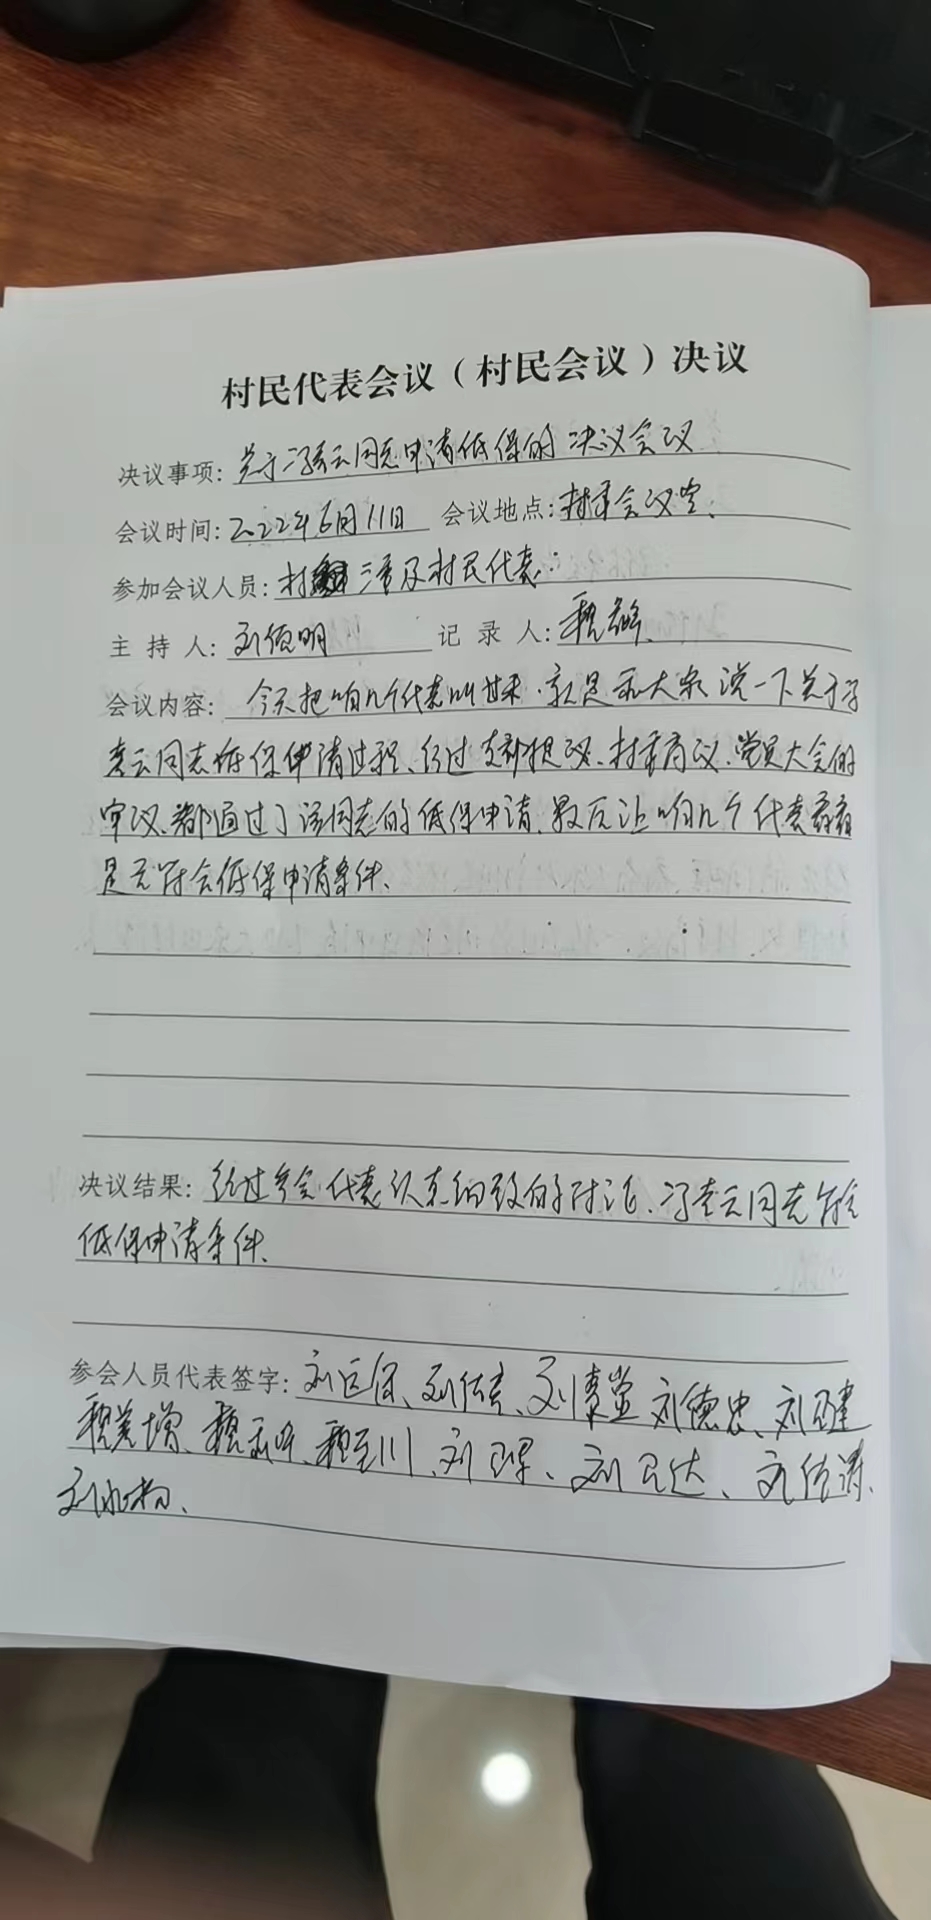 村民代表会议（村民会议）决议
决议事项：关于冯秀云同志申请低保的决议会议
会议时间：2022年6月11日 会议地点：村委会议室、
参加会议人员：村 三委及村民代表
主 持 人：刘恒明 记 录 人：
会议内容：今天把咱几个代表叫过来、就是和大家说一下关于冯
秀云同志低保申请过程、经过支部提议、村委商议、党员大会的
审议、都通过了该同志的低保申请、最后让咱几个代表看看
是否符合低保申请条件、
决议结果：经过参会代表认真细致的讨论、冯秀云同志符合
低保申请条件、
参会人员代表签字：刘德忠、刘卫建
刘卫军、刘卫达、